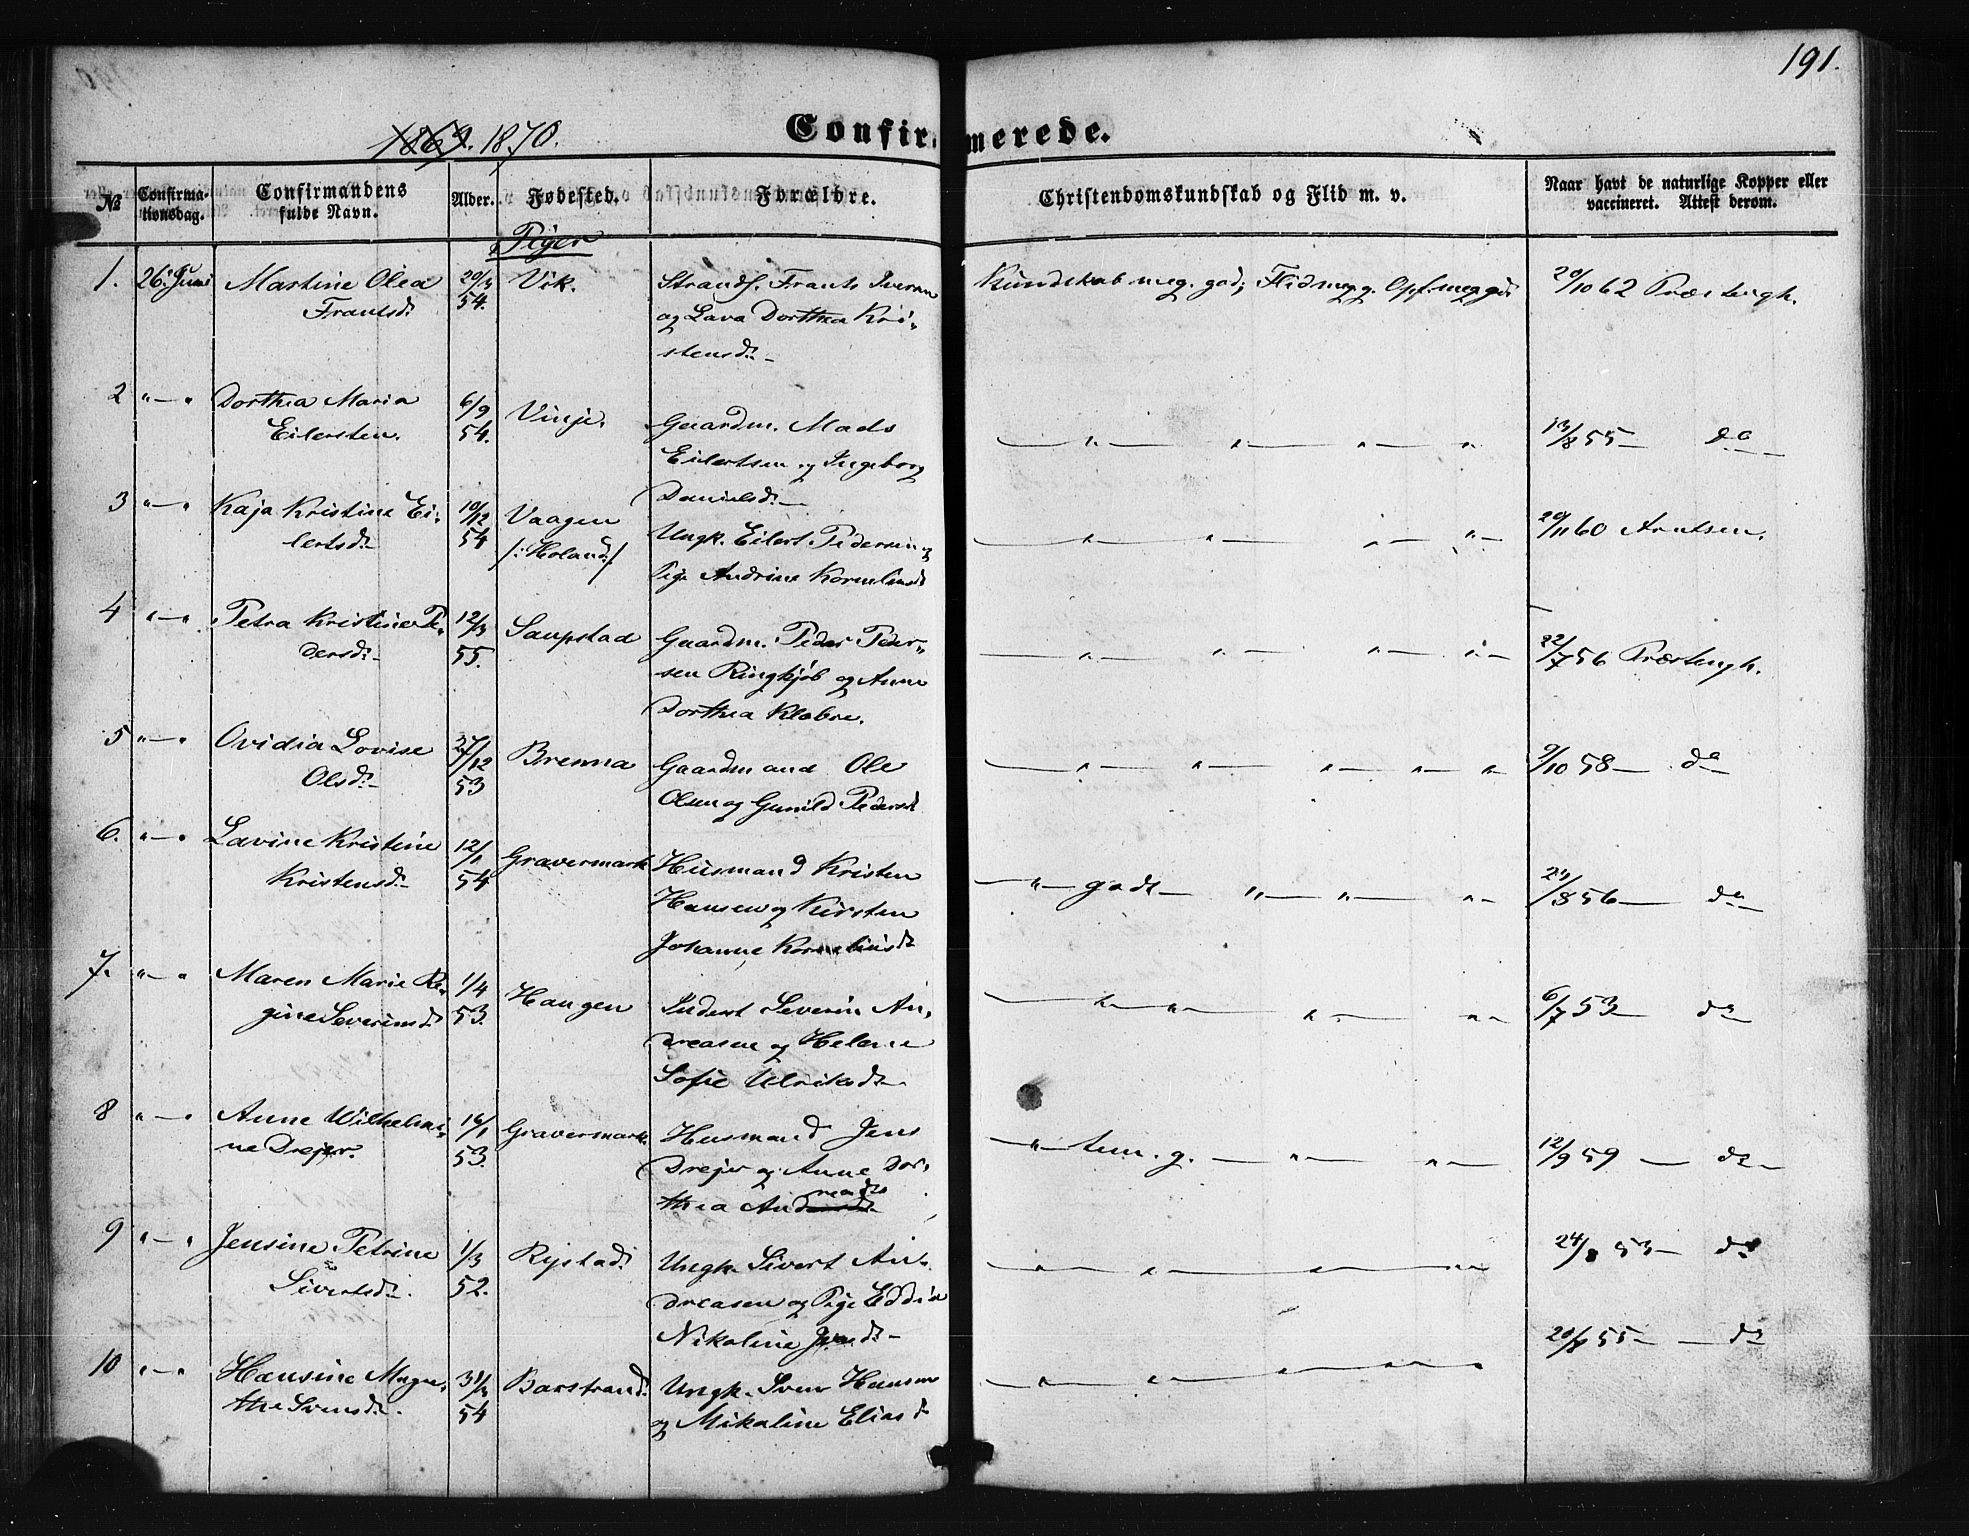 191.
1869. 1870.
Confirmerede.
№
Confirmationsdag.
Confirmandens fulde Navn.
Alder.
Fødested.
Forældre.
Christendomskundskab og Flid m. v.
Naar havt de naturlige Kopper eller vaccineret. Attest derom.
Piger
1. 26. Juni Martine Olea Vik. Strands. Frants Iversen Kundskab meg. god; Flid meg g. Opf. meg god 20/10 62 Præstegh.
Frantsd. 54. og Lava Dorthea Kri-
stensd. –
2 "—" Dorthea Maria 6/9 Vinje. Gaardm. Mads 13/8 55 — do
Eilertsen. 54. Eilertsen og Ingeborg
Danielsd. —
3 "—" Kaja Kristine Ei- 10/12 Vaagen Ungk. Eilert Pedersen og 20/11 60 Arntsen.
lertsd. 54 /: Holand :/ Pige Andrine Kornelinsd
4 "—" Petra Kristine Pe- 12/3 Saupstad Gaardm. Peder Peder- 22/7 56 Præstegh.
dersd. 55. sen Ringkjøb og Anne
Dorthea Klæboe.
5 "—" Ovidia Lovise 27/12 Brenna Gaardmand Ole 9/10 58 — do
Olsd. 53 Olsen og Gunild Pedersd
6. "—" Lavine Kristine 12/1 Gravermark Husmand Kristen — " — godt — " — " — " 8 56 — do
Kristensd. 54 Hansen og Kirsten
Johanne Kornelinsd
7. "—" Maren Marie Re- 1/4 Haugen Inderst Severin An- 6/7 53 — do
gine Severinsd. 53. dreasen og Helene
Sofie Ulriksd.
8 "—" Anne Wilhelmi- 16/1 Gravermark Husmand Jens — " — tem. g. — " — " 12/9 59 — do
ne Drejer. 53. Drejer og Anne Dor-
thea And
9 "—" Jensine Petrine 1/3 Ripstad. Ungk. Sivert An- 24/8 53 — do
Sivertsd. 52. dreasen og Pige Eddin
Nikoline
10 "—" Hansine Magn- 31/3 Barstrand. Ungk. Sven Hansen 20/8 55 — do
the Svensd. 54 og Mikaline Eliasd